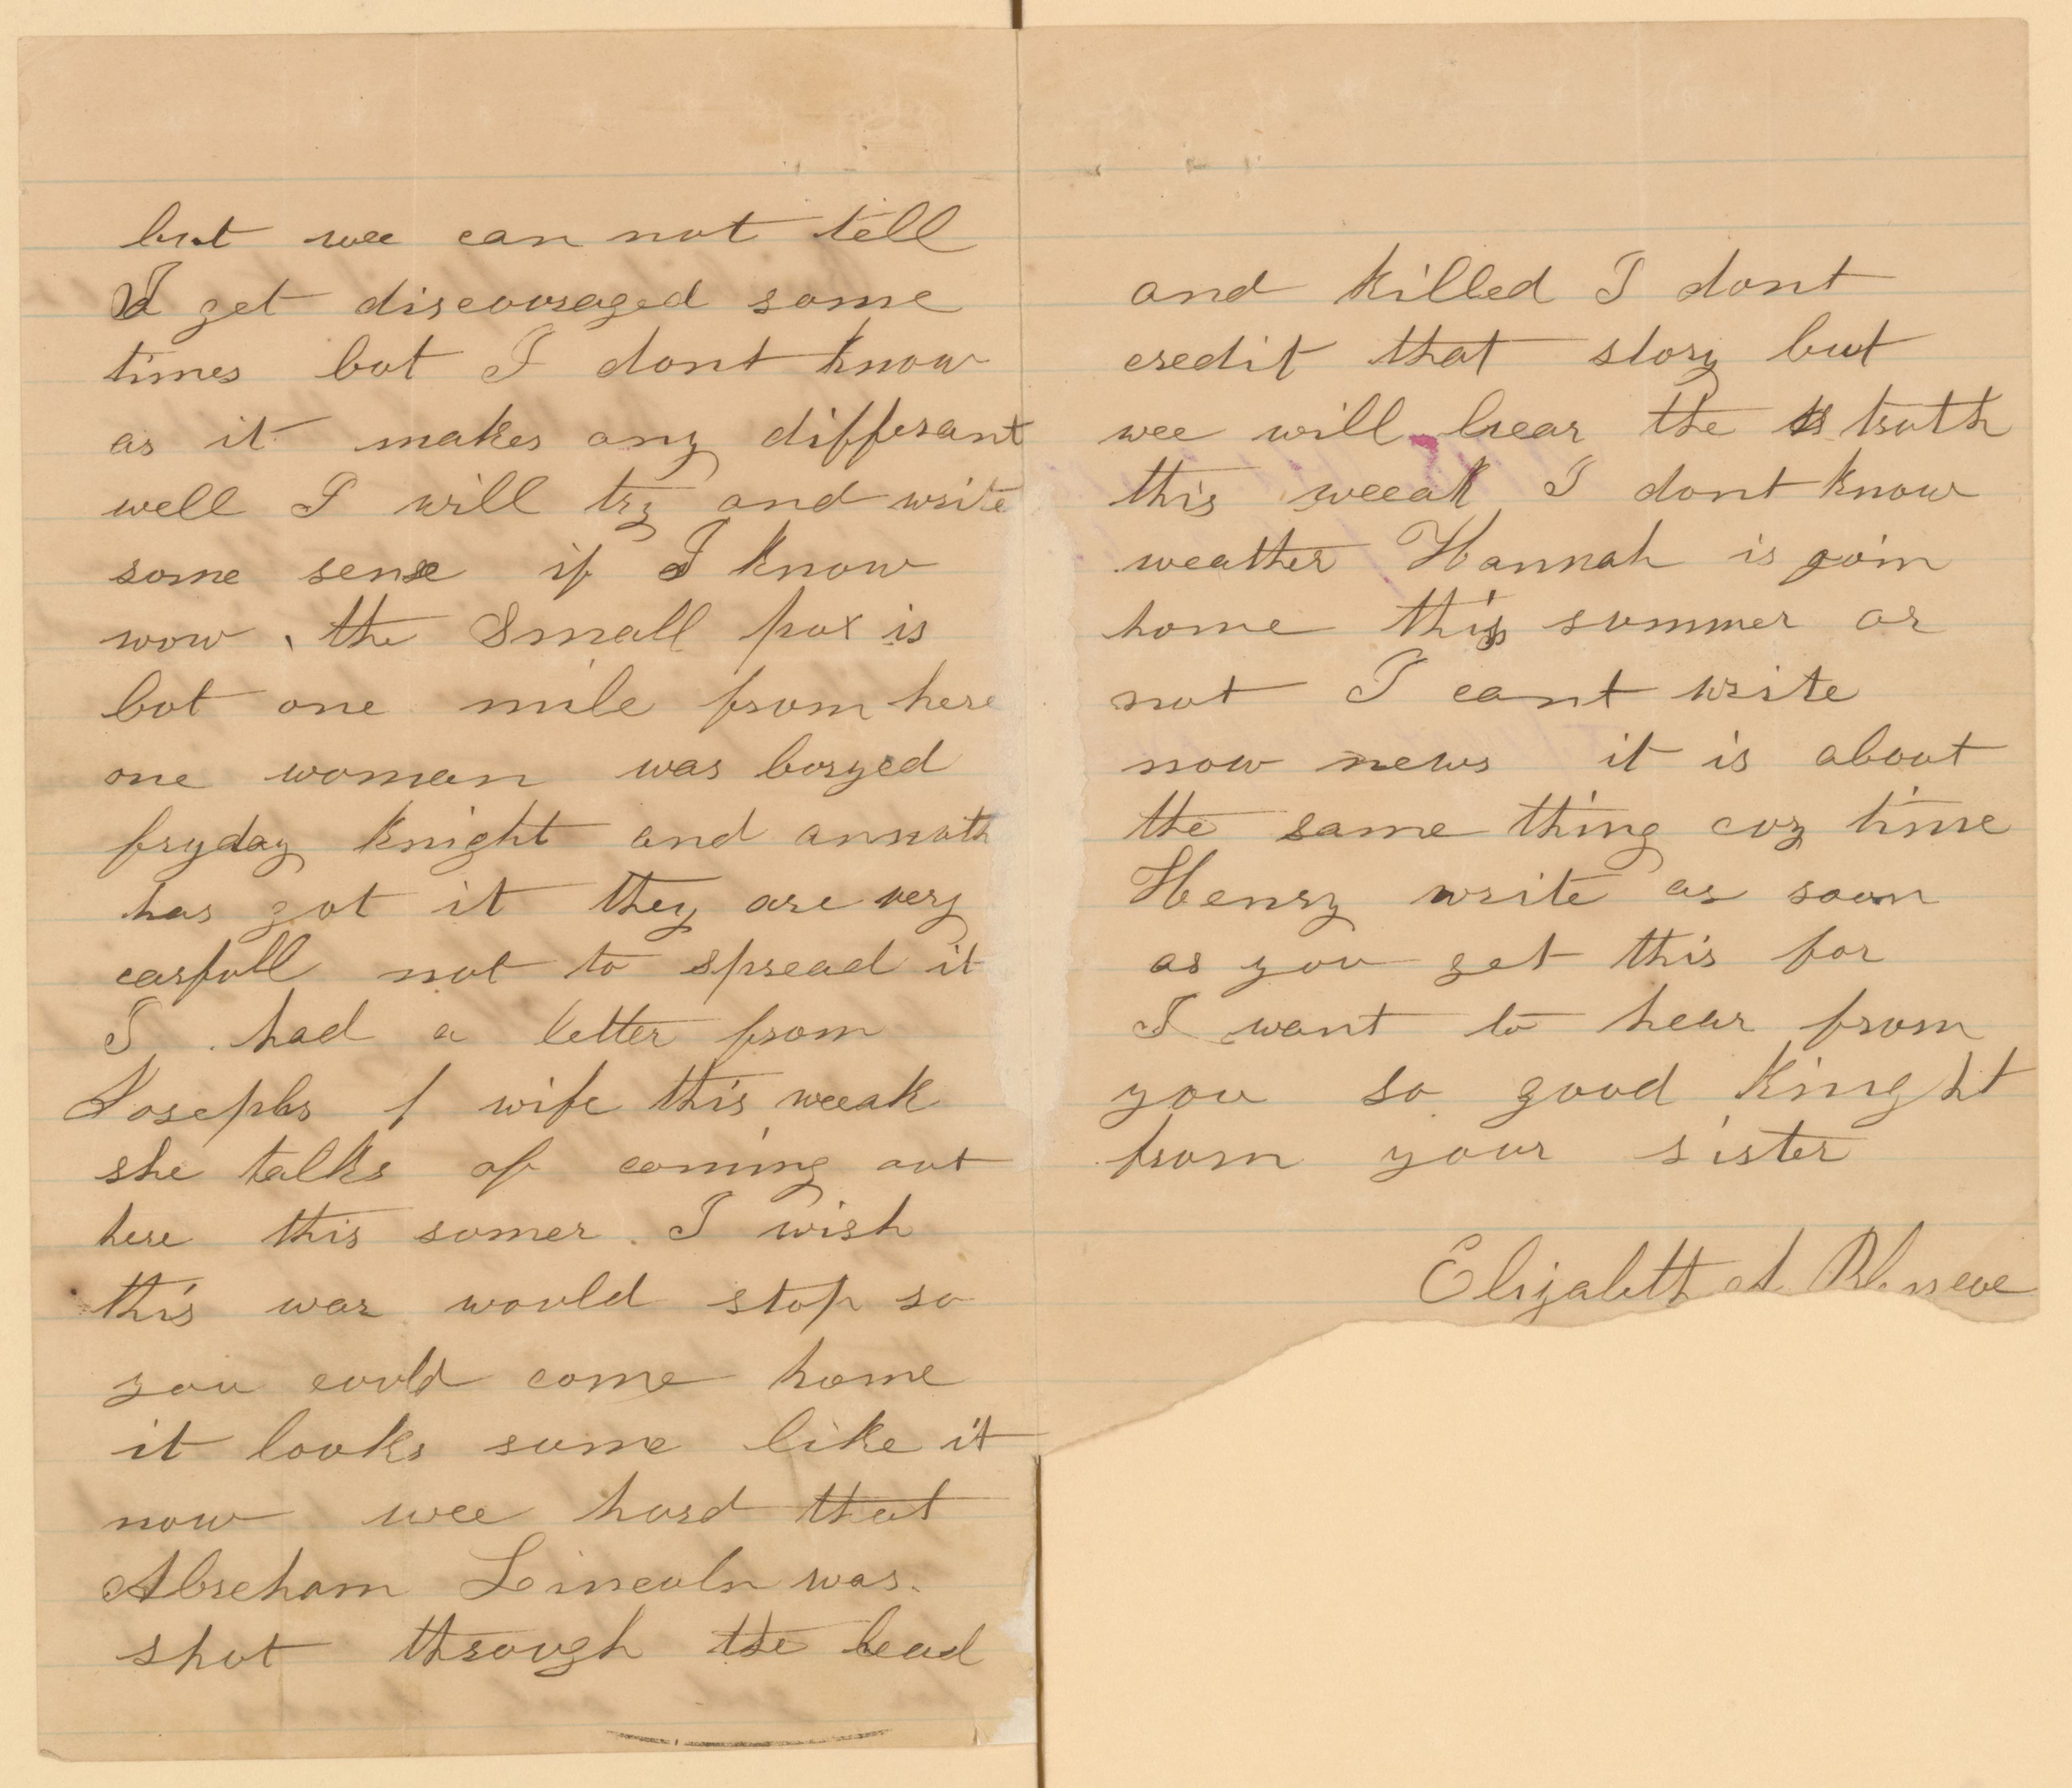 but wee can not tell
I get discouraged some
times but I dont know
as it makes any differant
well I will try and write
some sense if I know
wow the Small pox is
bot one mile from here
one woman was boryed
fryday knight and annoth
has got it they are very
carfull not to spread it
I had a letter from
Josephs f wife this weeak
she talks of coming out
here this somer I wish
this war would stop so
you could come home
it looks some like it
now wee hard that
Abreham Lincoln was
shot through the head
and killed I dont
credit that story but
wee will hear the truth
this weeak I dont know
weather Hannah is goin
home this summer or
not I cant write
now news it is about
the same thing evry time
Henry write as soon
as you get this for
I want to hear from
you so good kinght
from your sister
Elizabeth A